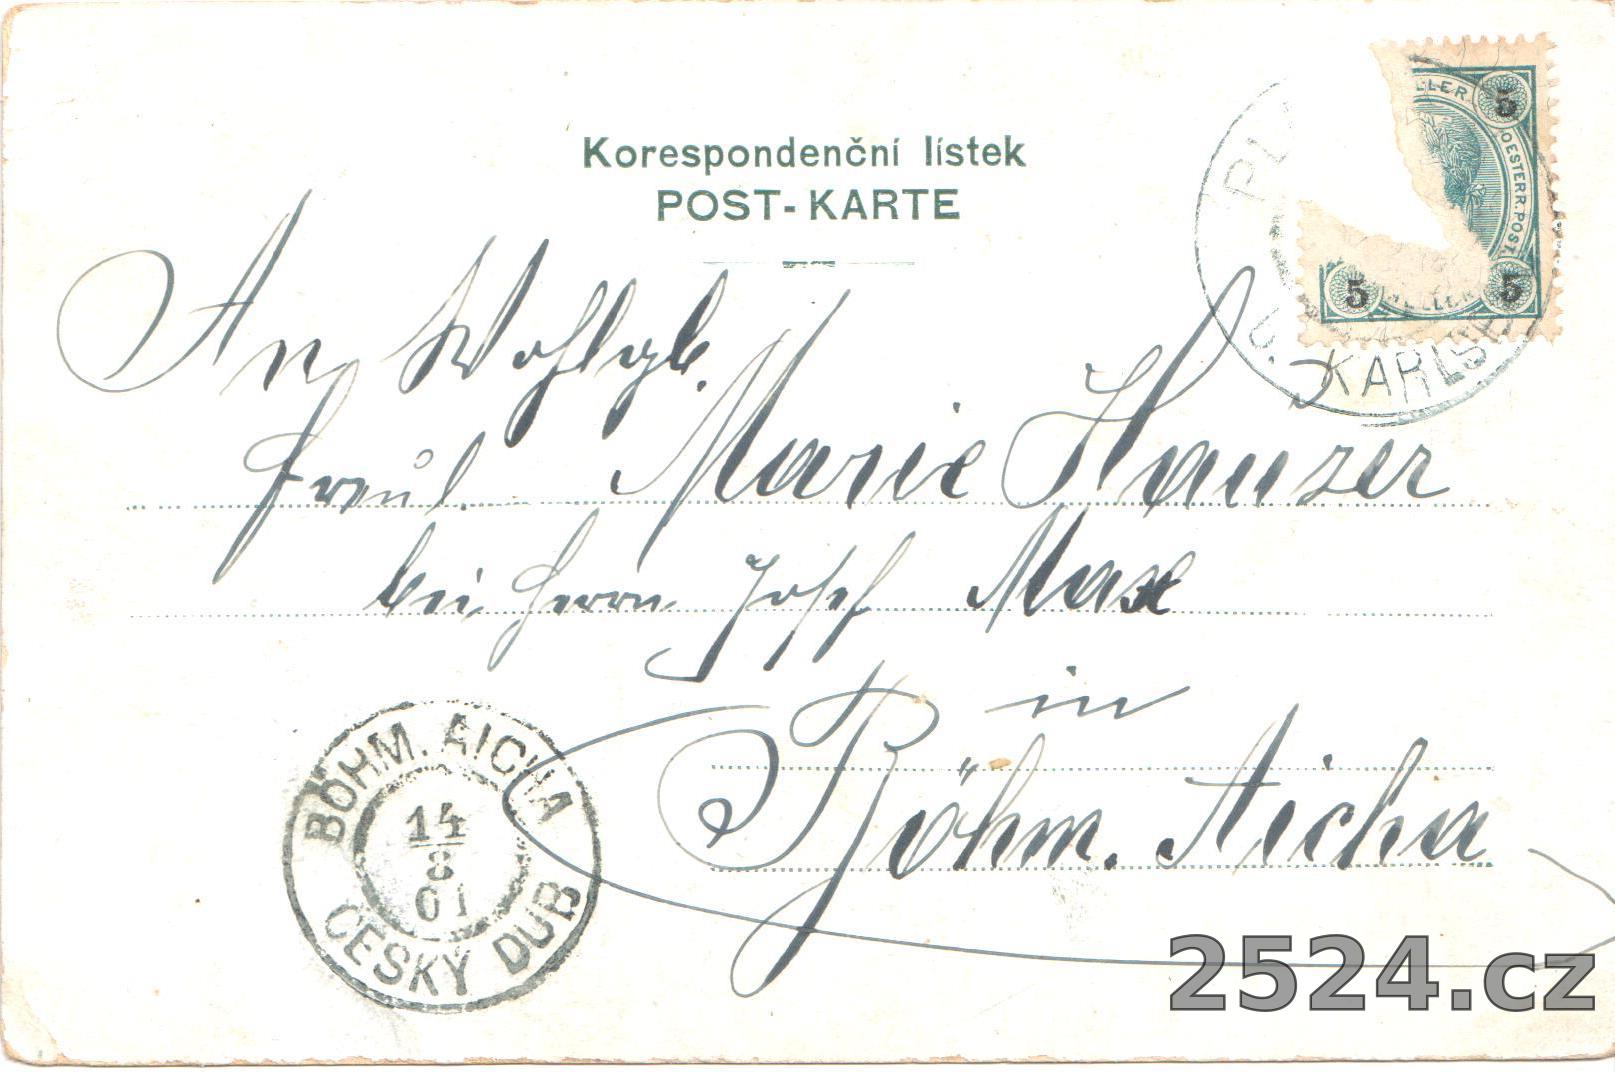 Korespondenční lístek
POST-KARTE
HELLER
5
OESTERR. POST
5
HELLER
5
PL
KARLS
An Wohlgb.
Freul. Marie Hauzer
bei Herrn Josef Max
in
Böhm. Aicha
BÖHM. AICHA
14
8
01
ČESKÝ DUB
2524.cz